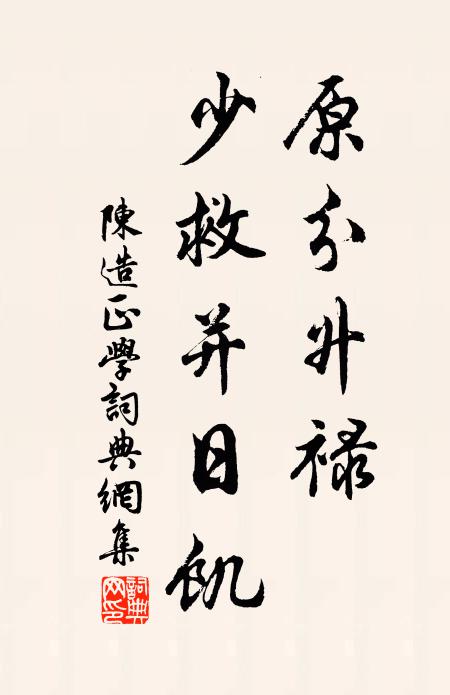 原分升禄
少救并日飢
陳造正學詞典網集
詞典網印